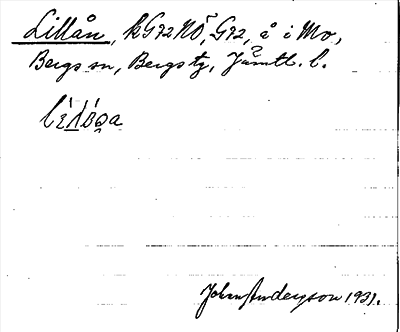 Lillån, kG92NÖ, G92, å i Mo,
Bergs sn, Bergs tg, Jämtl. l.
Johan Anderzson 1931.